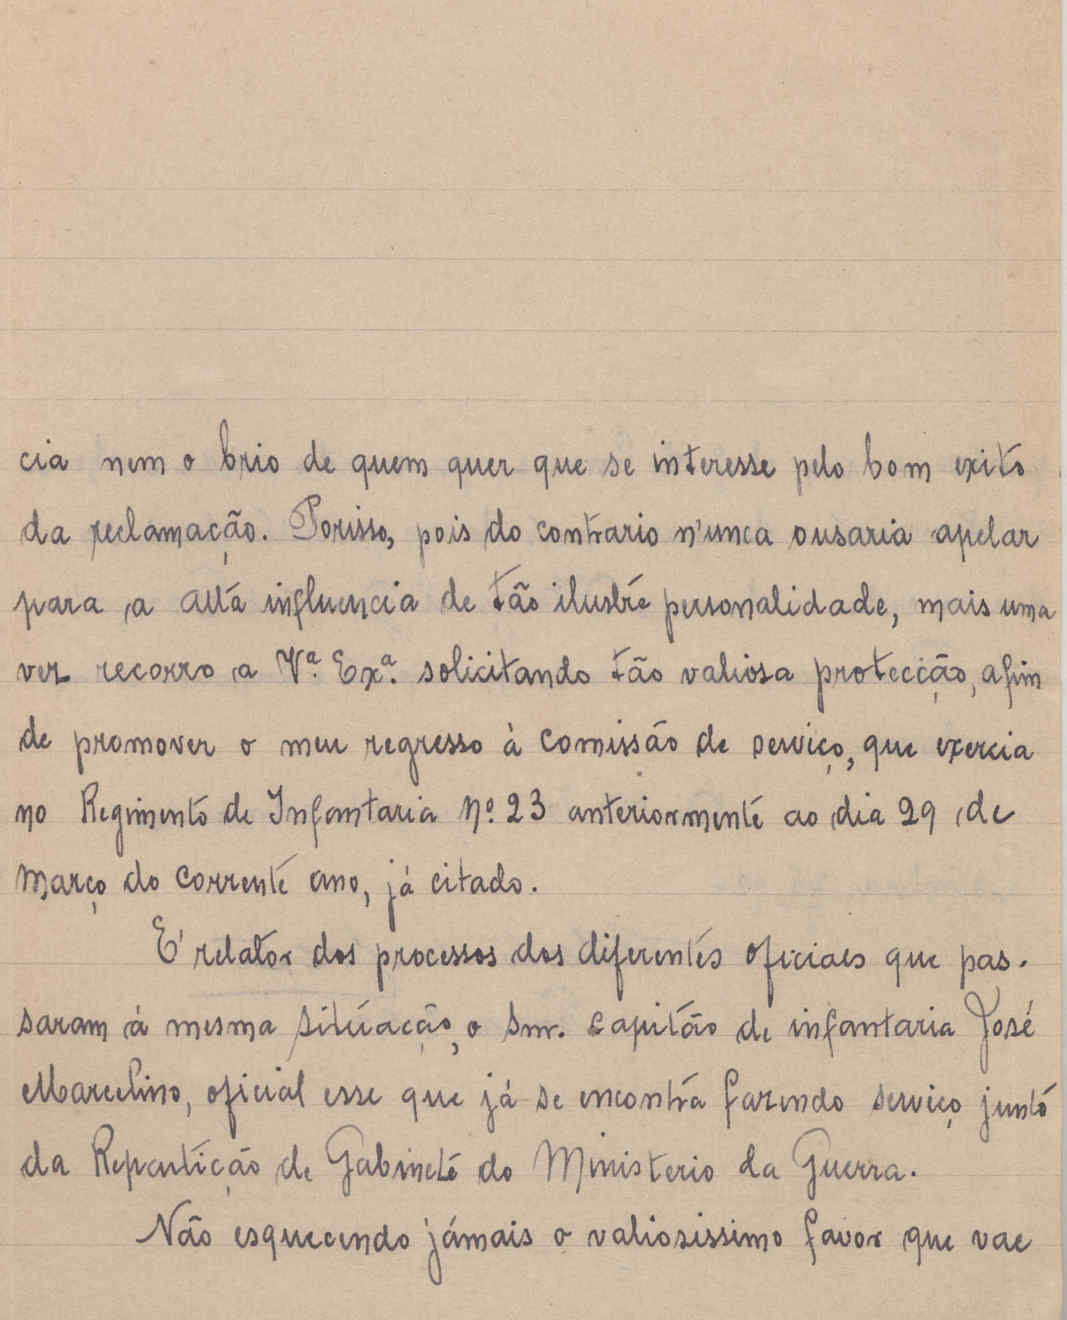 cia nem o brio de quem quer que se interesse pelo bom exito
da reclamação. Porisso, pois do contrario n'unca ousaria apelar
para a alta influencia de tão ilustre personalidade, mais uma
vez recorro a Vª. Exª. solicitando tão valiosa protecção, afim
de promover o meu regresso à comissão de serviço, que exercia
no Regimento de Infantaria Nº 23 anteriormente ao dia 29 de
Março do corrente ano, já citado.
E' relator dos processos dos diferentes oficiaes que pas-
saram á mesma situação, o Snr. Capitão de infantaria José
Marcelino, oficial esse que já se encontra fazendo serviço junto
da Repartição de Gabinete do Ministerio da Guerra.
Não esquecendo jámais o valiosissimo favor que vae